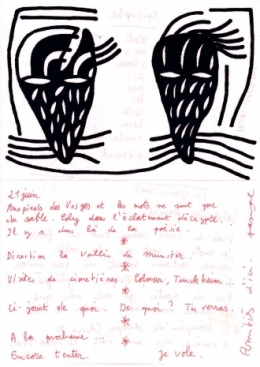 21 juin
Aux pieds des Vosges et les mots ne sont que
du sable. Coley dans l'éclatement décrypte.
Il y a dans là de la poésie.
*
Direction la vallée de munster.
*
Visites de cimetières. Colmar, Turckheim...
*
Ci-gisent de quoi. De quoi ? Tu verras.
*
A la prochaine ...
Encore tenter. Je vole.
d'ici.